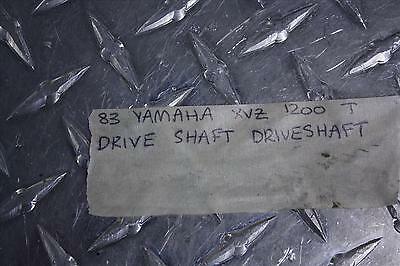 83 YAMAHA XVZ 1200 T
DRIVE SHAFT DRIVESHAFT